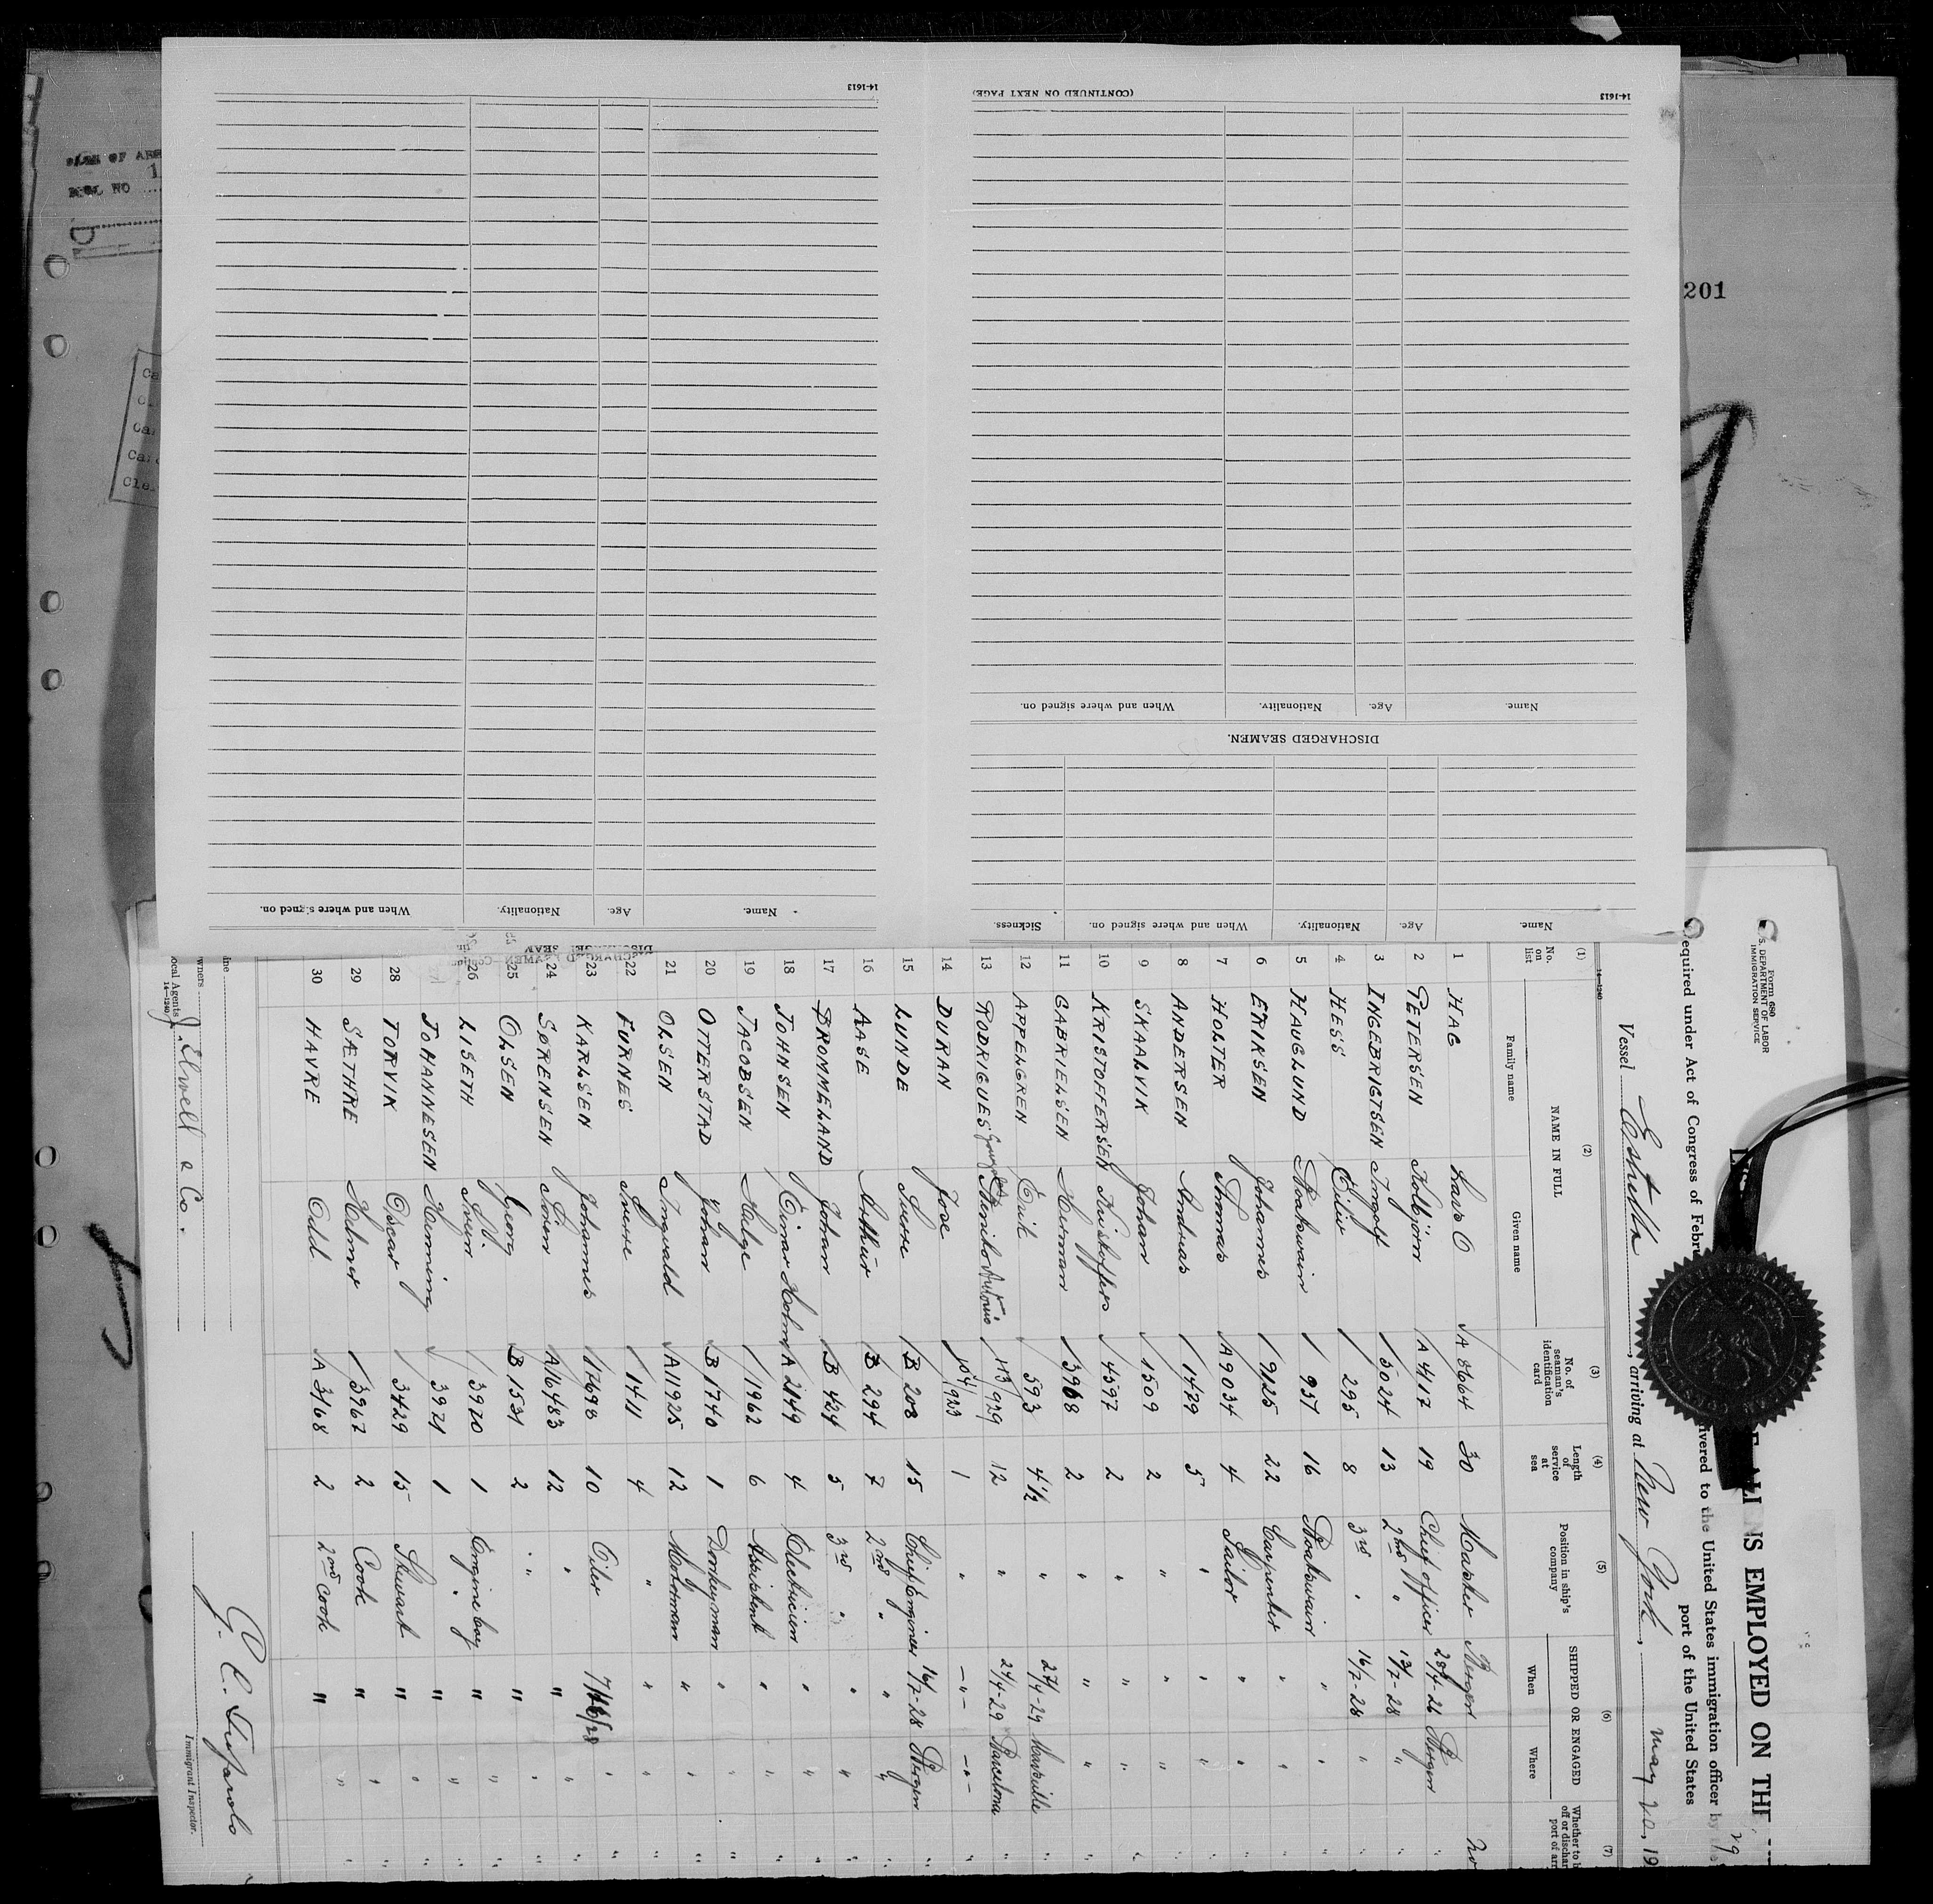 14-1613
(CONTINUED ON NEXT PAGE)
14-1613
201
Name.
Age.
Nationality.
When and where signed on.
DISCHARGED SEAMEN.
Name.
Age.
Nationality.
When and where signed on.
Sickness.
Name.
Age.
Nationality.
When and where signed on.
Form 680
S. DEPARTMENT OF LABOR
IMMIGRATION SERVICE
IS EMPLOYED ON THE
equired under Act of Congress of Febru
ivered to the United States immigration officer by
port of the United States
Vessel Estrella, arriving at New York, May 20, 19 29
14-1240
(1) (2) (3) (4) (5) (6) (7)
No. on list NAME IN FULL Family name Given name No. of seaman's identification card Length of service at sea Position in ship's company SHIPPED OR ENGAGED When Where Whether to b off or dischar port of arr
1 HAG Lars O A 8664 30 Master Bergen No
2 PETERSEN Kolbjörn A 4417 19 Chief officer 28/4-26 Bergen "
3 INGEBRIGTSEN Ingolf 5024 13 2nd " 13/7-28 " "
4 HESS Eiliv 295 8 3rd " 16/7-28 " "
5 HAUGLUND 937 16 Boatswain " " "
6 ERIKSEN Johannes 9125 22 Carpenter " " "
7 HOLTER Thomas A 9034 4 Sailor " " "
8 ANDERSEN Andreas 1479 5 " " " "
9 SKAALVIK Johan 1509 2 " " " "
10 KRISTOFFERSEN Kristoffer 4597 2 " " " "
11 GABRIELSEN Herman 3968 2 " " " "
12 APPELGREN Erik 593 4 1/2 " 27/4-29 Marseille "
13 RODRIGUES Benito Antonio 113/929 12 " 24/4-29 Barcelona "
14 DURAN Jose 104/923 1 " -"- -"- "
15 LUNDE Sverre B 208 15 Chief Engineer 16/7-28 Bergen "
16 AASE Arthur B 294 7 2nd " " " "
17 BROMMELAND Johan B 424 5 3rd " " " "
18 JOHNSEN Einar Holm A 2149 4 Electrician " " "
19 JACOBSEN Helge 1962 6 Assistent " " "
20 OTTERSTAD Johan B 1740 1 Donkeyman " " "
21 OLSEN Ingvald A 11925 12 Motorman " " "
22 FURNES Sverre 1411 4 " " " "
23 KARLSEN Johannes 17698 10 Oiler " "
24 SØRENSEN Sören A 16483 12 " " " "
25 OLSEN Georg B 1531 2 " " " "
26 LISETH Sverr 3970 1 Engine boy " " "
JOHANNESEN Henning 3971 1 " " " "
28 TORVIK Oscar 3429 15 Stewart " " "
29 SÆTHRE Helmer 3967 2 Cook " " "
30 HAVRE Odd A 3168 2 2nd Cook " " "
ine
wners
ocal Agents J. Elwell & Co.
14-1240
Immigrant Inspector.